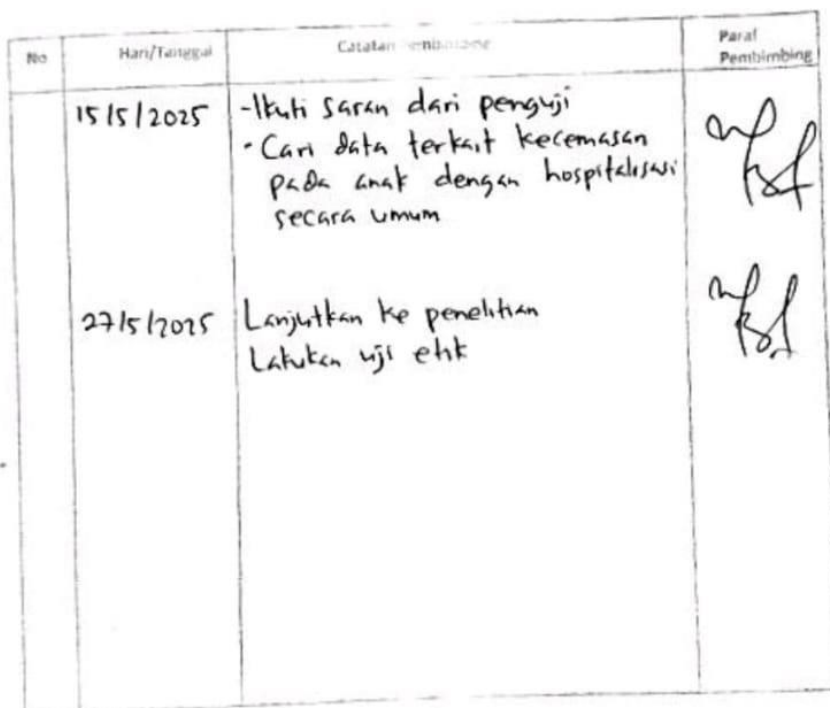 No Hari/Tanggal Catatan Pembimbing Paraf
Pembimbing
15/5/2025 -Ikuti saran dari penguji
• Cari data terkait kecemasan
pada anak dengan hospitalisasi
secara umum
27/5/2025 Lanjutkan ke penelitian
Lakukan uji etik